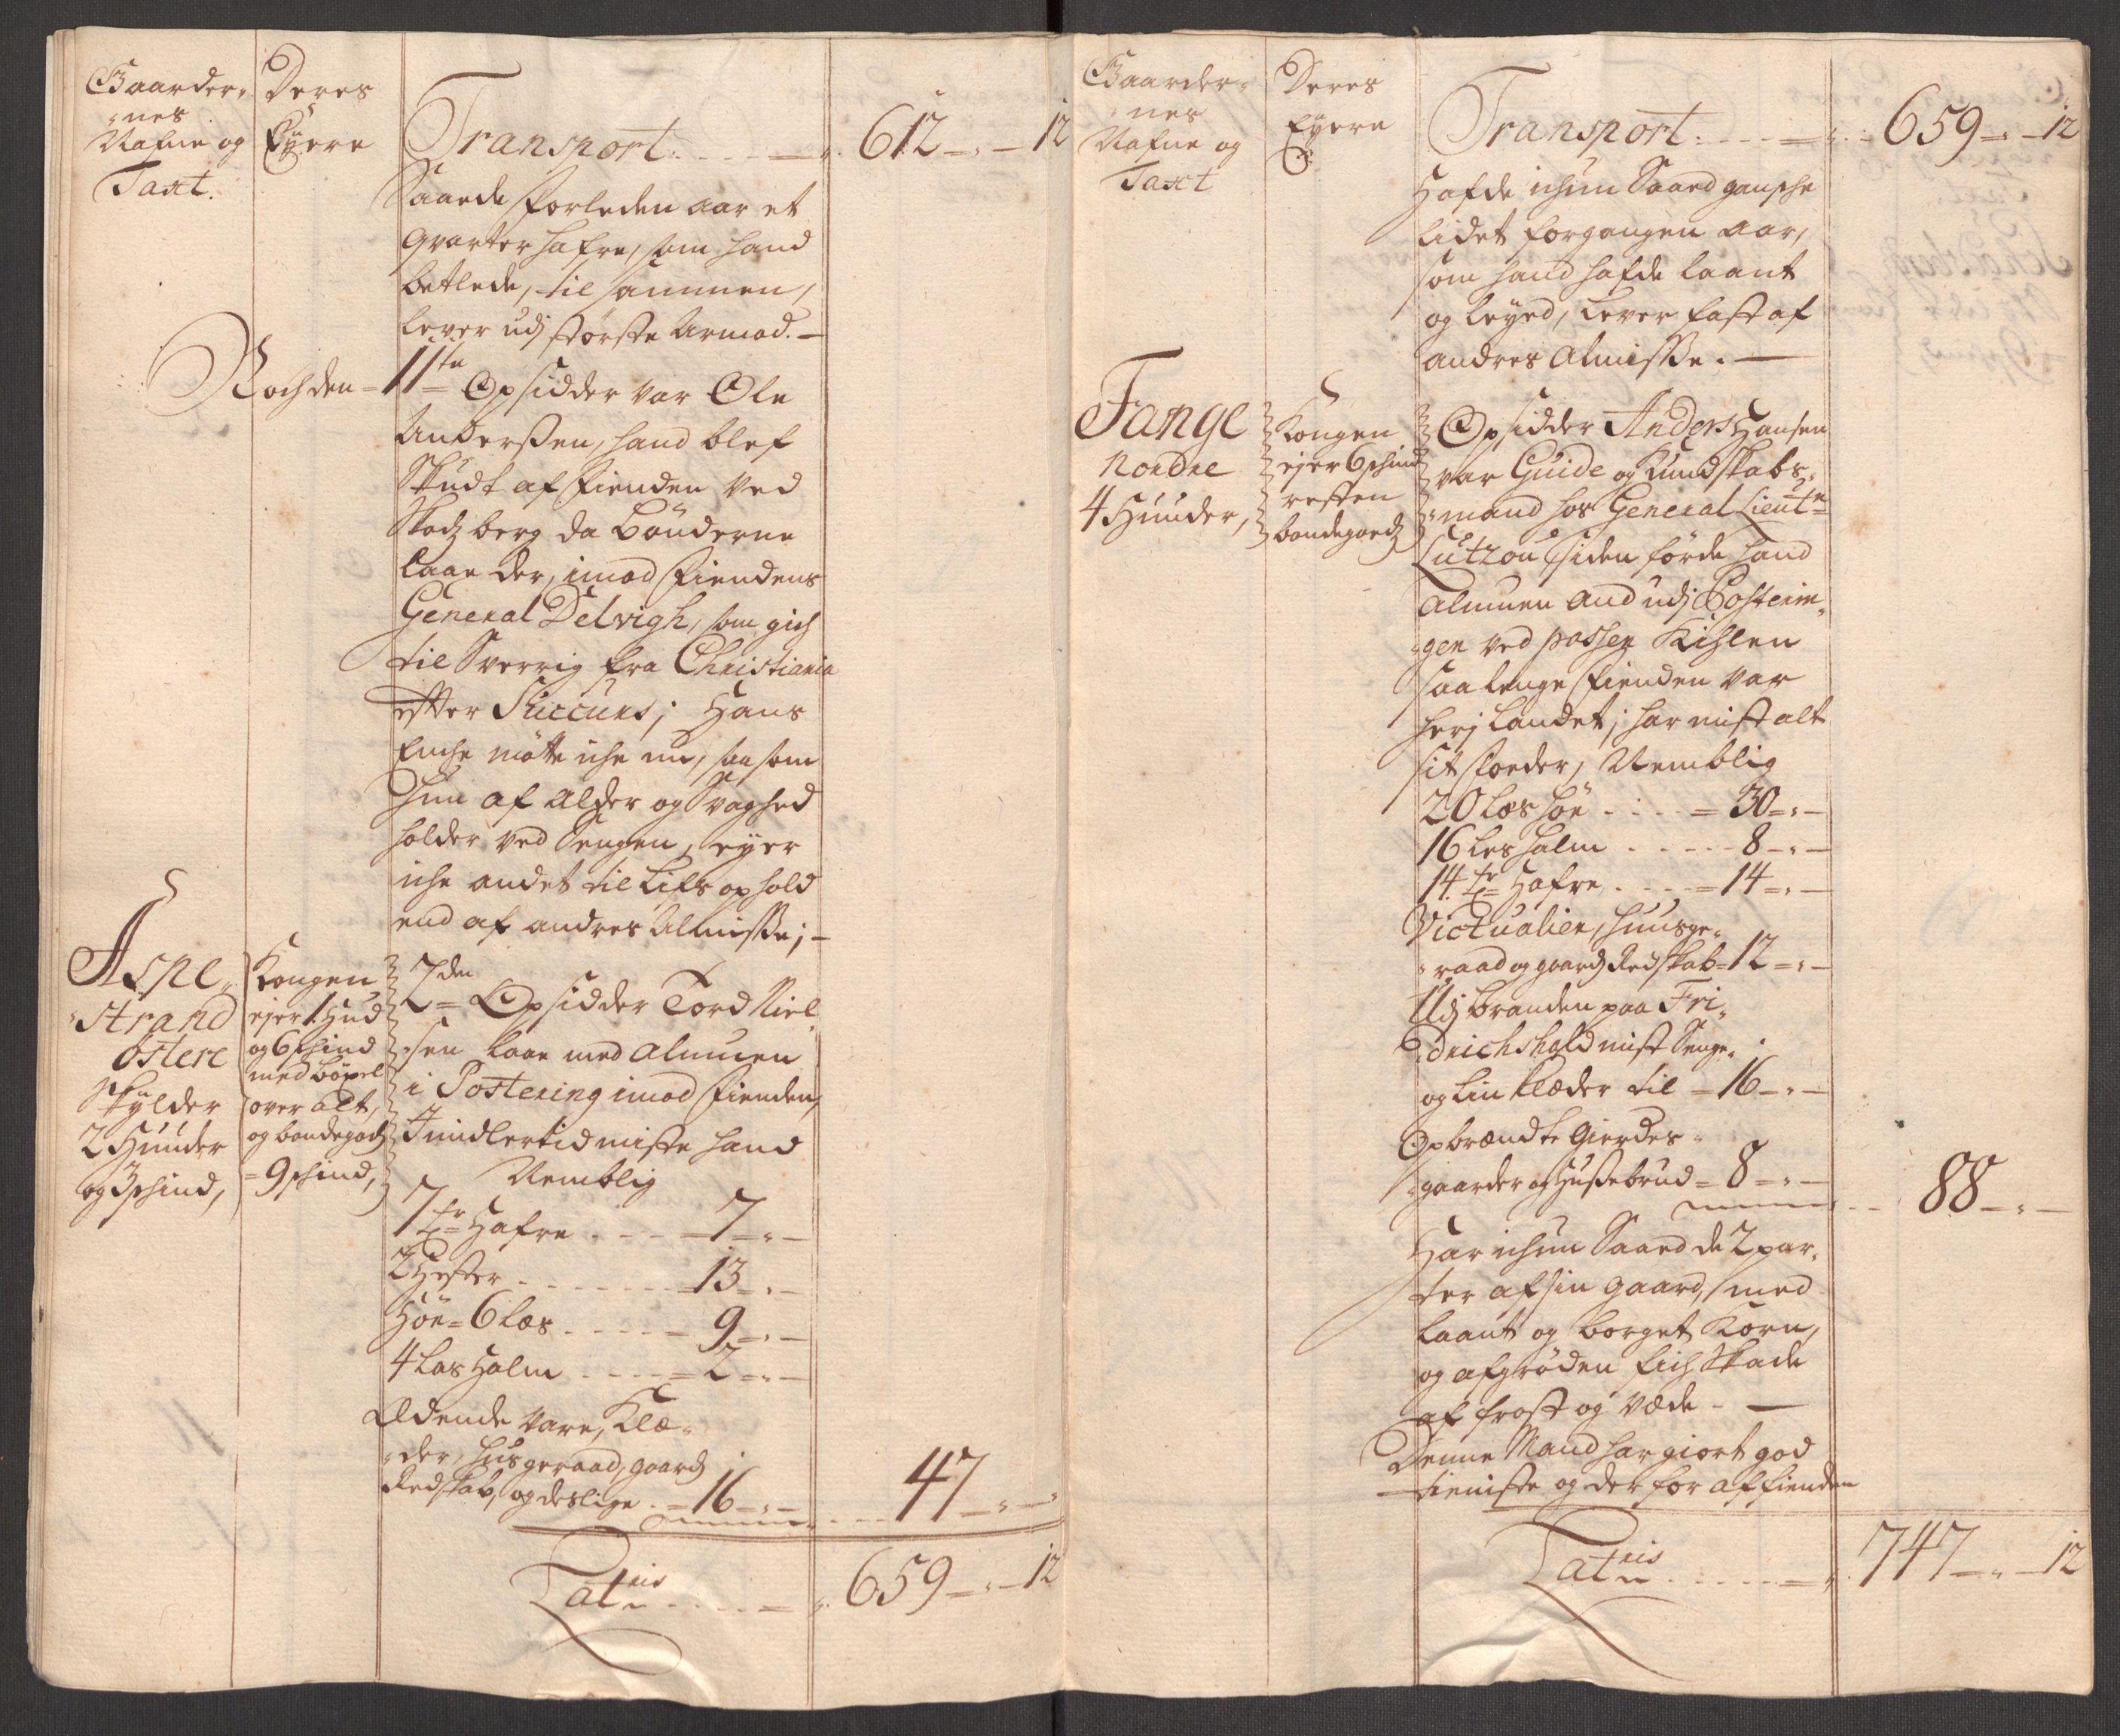 Gaarder-
-nes
Nafne og
Taxt.
Deres
Eyere
Transport . . . . 612 - " - 12
Saaede forleden aar et
qvarter hafre, som hand
betlede, til sammen,
lever udj störste Armod. -
Noch den - 11te Opsidder var Ole
Anderssen, hand blef
Skudt af Fienden ved
Skodzberg da Bönderne
laae der, imod Fiendens
General Delvigh, som gich
til Sverrig fra Christiania
efter Succurs; Hans
Enche mötte iche nu, saasom
hun af Alder og Svaghed
holder ved Sengen, eyer
iche andet til Lifs ophold
end af andres Almisse; -
Aspe-
-strand
östere
Skylder
2 Huuder
og 3 schind,
Kongen
ejer 1 Hud
og 6 schind
med böxel
over alt,
og bondegodz
= 9 schind,
2den Opsidder Tord Niel-
-sen laae med Almuen
i Postering imod Fienden,
Imidlertid miste hand
Nemblig
7 tr Hafre . . . - 7 - " -
2 Hester . . . . . 13 - " -
Höe - 6 læs . . . . - 9 - " -
4 Las Halm . . . . = 2 - " -
Ædende vare, Klæ-
-der, huusgeraad, gaardz
Redskab, og deslige . - 16 - " -
47 - " -
Latris . . . . 659 - " - 12
Gaarder-
-nes
Nafne og
Taxt
Deres
Eyere
Transport . . . . 659 - " - 12
Hafde ichun Saaed gansche
lidet forgangen aar,
som hand hafde laant
og leyed, Lever fast af
andres Almisse. -
Tange
Nordre
4 Huuder,
Kongen
ejer 6 schind
resten
bondegodz
Opsidder Anders Hansen
var Guide og Kundskabs-
-mand hos General Lieutn
Lützou, siden förde hand
Almuen and udj Posterin-
-gen ved Passen Kihlen
saalenge Fienden var
herj Landet; har mist alt
sit Foeder, Nemblig
20 læs höe . . . . = 30 - " -
16 Les halm . . . . . 8 - " -
14 tr Hafre . . . . = 14 - " -
Victualier, huusge-
-raad og gaardz Redskab - 12 - " -
Udj branden paa Fri-
-drichshald mist Senge-
og Lin klæder til - 16 - " -
Opbrændte Gierdes-
-gaarder og Hussebrud = 8 - " -
88 - " -
Har ichun Saaed de 2 par-
-ter af sin gaard, med
laant og borget Korn,
og afgröden fich Skade
af frost og væde - -
Denne Mand har giort god
tieniste og derfor af fienden
Latris . . . . 747 - " - 12